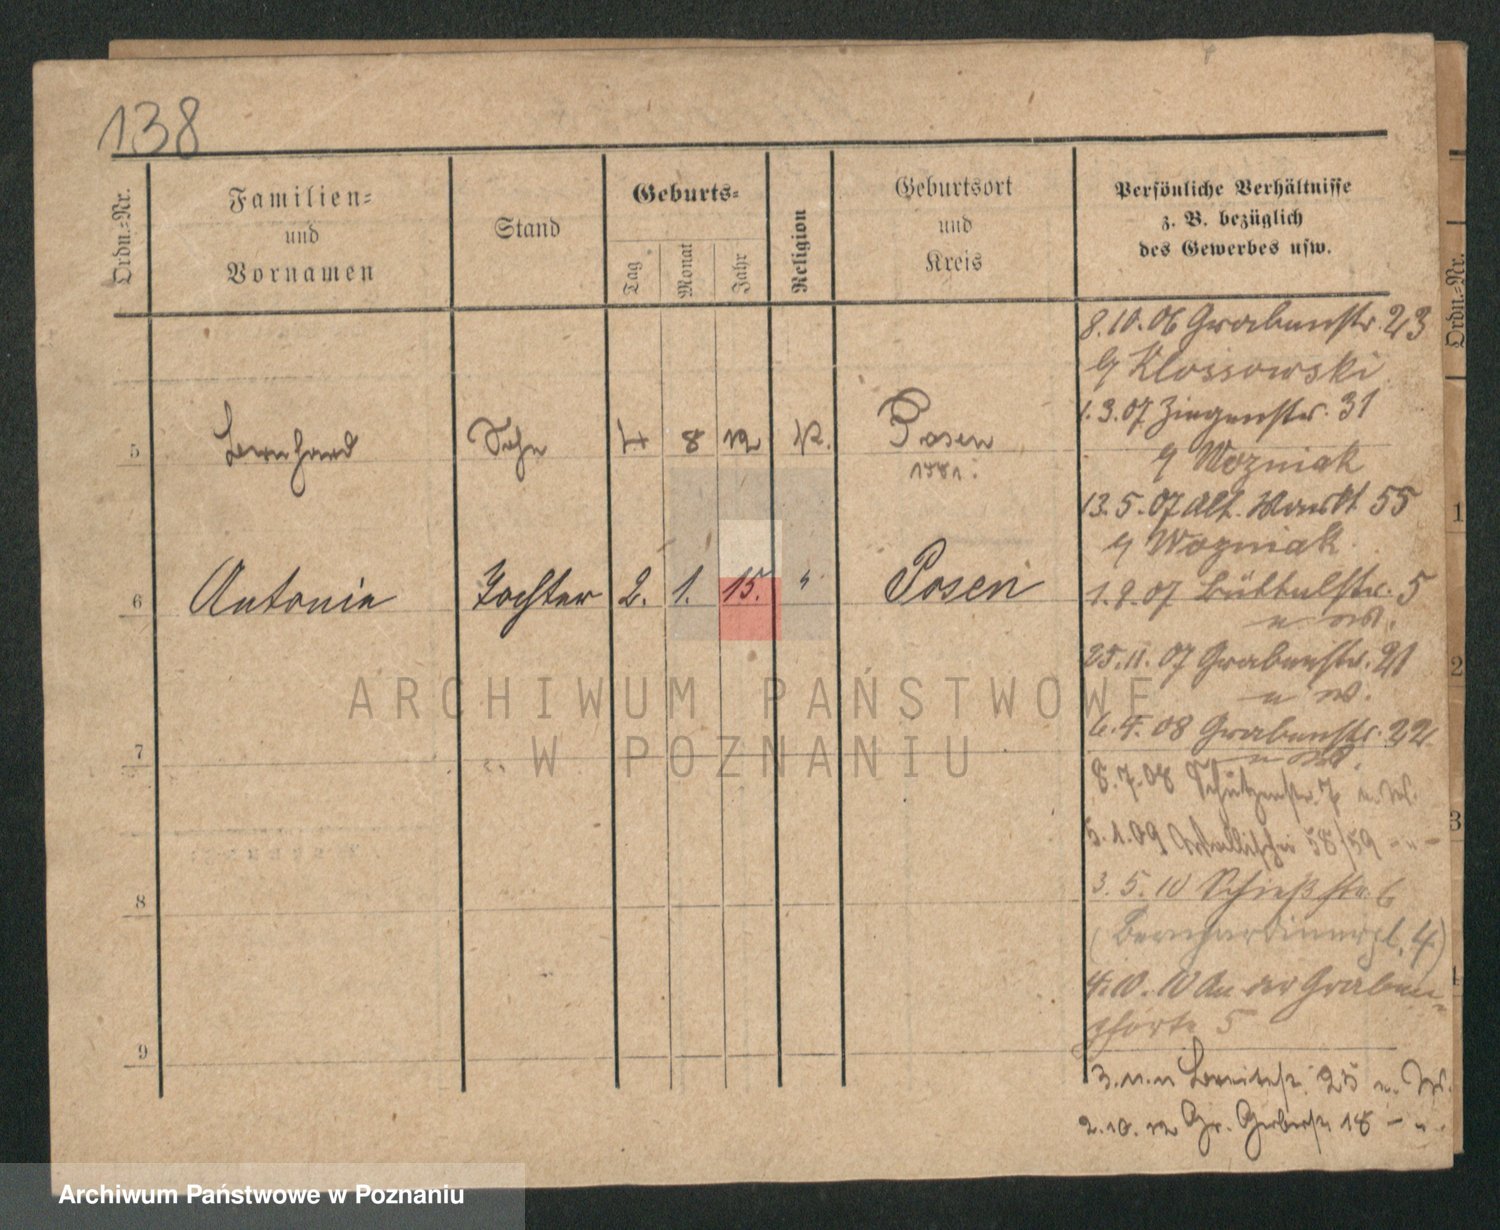 138
Ordn.-Nr.
Familien-
und
Vornamen
Stand
Geburts-
Tag
Monat
Jahr
Religion
Geburtsort
und
Kreis
Persönliche Verhältnisse
z. B. bezüglich
des Gewerbes usw.
Ordn.-Nr.
8.10.06 Grabenstr. 23
Klossowski
1.3.07 Ziegenstr. 31
Wozniak
13.5.07 Alt. Markt 55
Wozniak
5 Bernhard Sohn 4 8 12 K. Posen
1.9.07 Büttelstr. 5
6 Antonie Tochter 2. 1. 15. " Posen
25.11.07 Grabenstr. 21
u W.
6.4.08 Grabenstr. 22
7
8.7.08 Schützenstr. 7 u. W.
5.1.09 Wallischei 58/59 - " -
3.5.10 Schießstr. 6
8
(Bernhardinerpl. 4)
4.10.10 An der Graben-
pforte 5
9
3.11.11 Breitestr. 25 u. W.
2.10.12 Gr. Gerberstr. 18 - " -
1
2
3
ARCHIWUM PAŃSTWOWE
W POZNANIU
Archiwum Państwowe w Poznaniu